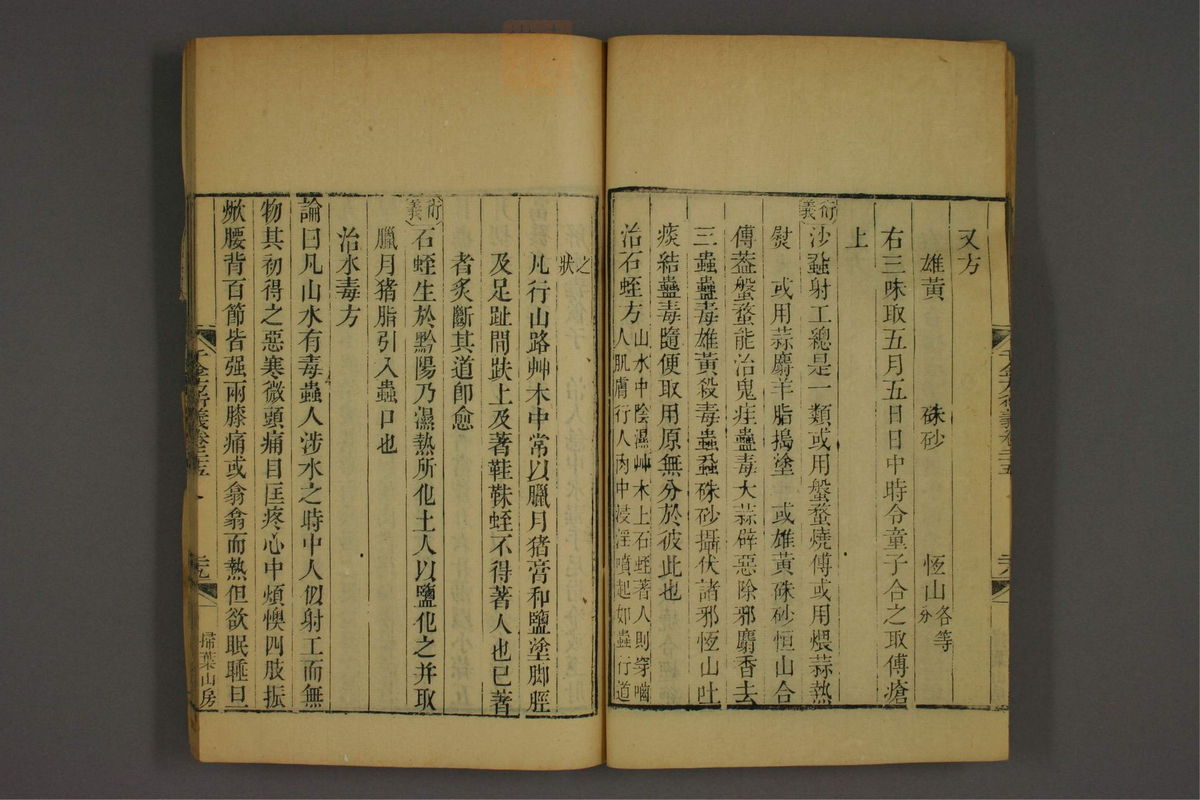 又方
雄黃 硃砂 恆山各等分
右三味取五月五日日中時令童子合之取傅瘡
上
衍義
沙蝨射工總是一類或用盤蝥燒傅或用煨蒜熱
熨 或用蒜麝羊脂搗塗 或雄黃硃砂恒山合
傅葢盤蝥能治鬼疰蠱毒大蒜辟惡除邪麝香去
三蟲蠱毒雄黃殺毒蟲蝨硃砂攝伏諸邪恆山吐
痰結蠱毒隨便取用原無分於彼此也
治石蛭方山水中陰濕艸木上石蛭著人則穿嚙
人肌膚行人肉中浸淫墳起如蟲行道
之狀
凡行山路艸木中常以臘月猪膏和鹽塗脚脛
及足趾間趺上及著鞋靺蛭不得著人也已著
者炙斷其道卽愈
衍義
石蛭生於黔陽乃濕熱所化土人以鹽化之并取
臘月猪脂引入蟲口也
治水毒方
論曰凡山水有毒蟲人涉水之時中人似射工而無
物其初得之惡寒微頭痛目匡疼心中煩懊四肢振
焮腰背百節皆强兩膝痛或翕翕而熱但欲眠睡旦
千金方衍義卷二十五
掃葉山房